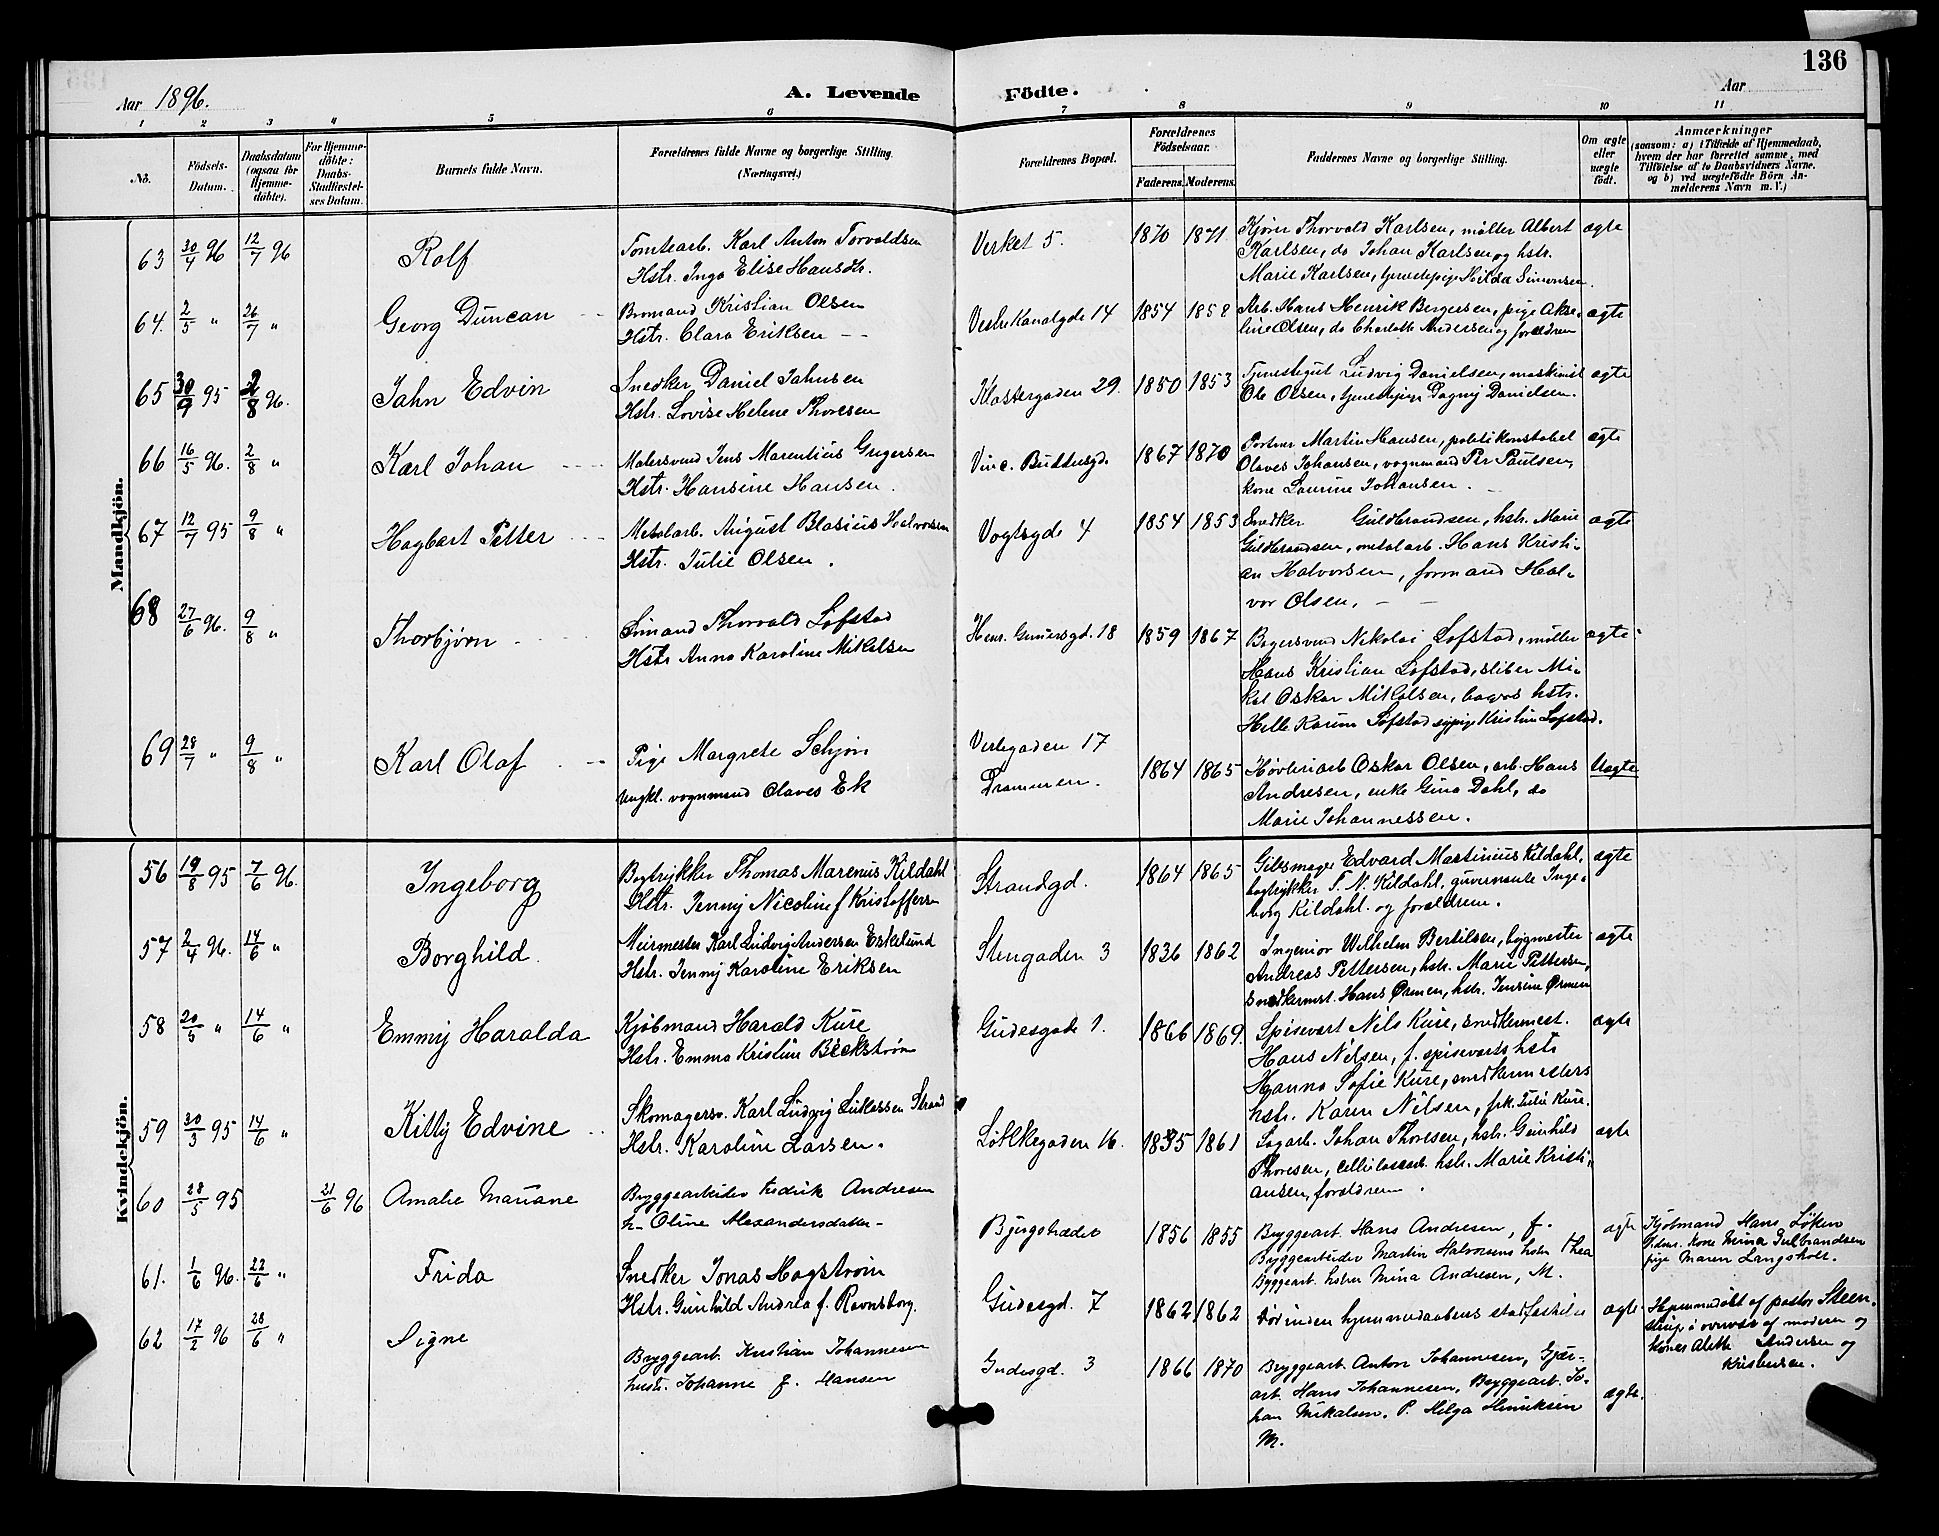 136
Aar 1896.
A. Levende Födte.
Aar
1 2 3 4 5 6 7 8 9 10 11
No.
Födsels-Datum.
Daabsdatum (ogsaa for Hjemme-döbte).
For Hjemme-döbte: Daabs-Stadfæstel-ses Datum.
Barnets fulde Navn.
Forældrenes fulde Navne og borgerlige Stilling. (Næringsvei.)
Forældrenes Bopæl.
Forældrenes Födselsaar.
Faderens. Moderens.
Faddernes Navne og borgerlige Stilling.
Om ægte eller uægte födt.
Anmærkninger
(saasom: a) i Tilfælde af Hjemmedaab, hvem der har forrettet samme, med Tilföielse af to Daabsvidners Navne. og b) ved uægtefödte Börn An-melderens Navn m. V.)
Mandkjön.
63 30/4 96 12/7 96 Rolf
Tomtearb. Karl Anton Torvaldsen
Hstr. Inga Elise Hansdtr.
Verket 5. 1870 1871
Kjører Thorvald Karlsen, møller Albert
Karlsen, do Johan Karlsen og hstr.
Marie Karlsen, tjenestepige Hilda Simonsen.
ægte
64. 2/5 " 26/7 " Georg Duncan
Bromand Kristian Olsen
Hstr. Clara Eriksen
Vestre Kanalgde 14 1854 1858
Arb. Hans Henrik Bergersen, pige Akse-
line Olsen, do Charlotte Andersen og forældrene
ægte
65 30/9 95 2/8 96. Jahn Edvin
Snedker Daniel Jahnsen
Hstr. Lovise Helene Thoresen
Klostergaden 29. 1850 1853
Tjenestegut Ludvig Danielsen, maskinist
Ole Olsen, tjenestepige Dagny Danielsen.
ægte
66 16/5 96. 2/8 " Karl Johan
Malersvend Jens Marentius Gregersen
Hstr. Hansine Hansen.
Vinc. Buddesgd. 1867 1870
Portner Martin Hansen, politikonstabel
Olaves Johansen, vognmand Per Paulsen,
kone Laurine Johansen.
ægte
67 12/7 95 9/8 " Hagbart Petter
Metalarb. August Blasius Halvorsen
Hstr. Julie Olsen.
Vogtsgde 4 1854 1853
Snedker Guldbrandsen, hstr. Marie
Guldbrandsen, metalarb. Hans Kristi-
an Halvorsen, formand Hal-
vor Olsen.
ægte
68 27/6 96. 9/8 " Thorbjørn
Simand Thorvald Lofstad
Hstr Anna Karoline Mikalsen
Henr. Gernersgd. 18 1859 1867
Bagersvend Nikolai Lofstad, møller
Hans Kristian Lofstad, sliber Mi-
kal Oskar Mikalsen, bagers hstr.
Helle Karine Lofstad sypige Kristine Lofstad.
ægte
69 28/7 " 9/8 " Karl Olaf
Pige Margrete Schjøn
Ungkl. vognmand Olaves Ek
Verlegaden 17
Drammen. 1864 1865
Høvleriarb Oskar Olsen, arb. Hans
Andresen, enke Gina Dahl, do
Marie Johannessen.
Uægte
Kvindekjön.
56 19/8 95 7/6 96. Ingeborg
Bogtrykker Thomas Marenus Kildahl
Hstr. Jenny Nicoline f Kristoffersen
Strandgd. 1864 1865
Gibsmager Edvard Martinius Kildahl,
bogtrykker T. N. Kildahl, guvernante Inge-
borg Kildahl. og forældrene.
ægte
57 2/4 96. 14/6 " Borghild.
Murmester Karl Ludvig Andersen Eskelund
Hstr. Jenny Karoline Eriksen
Stengaden 3 1836 1862
Ingeniør Wilhelm Bertilsen, bygmester
Andreas Pettersen, hstr. Marie Pettersen,
snedkermst. Hans Ørmen, hstr. Jensine Ørmen
ægte
58 20/5 " 14/6 " Emmy Haralda
Kjøbmand Harald Kure
Hstr. Emma Kristine Beckstrøm
Gudesgade 1. 1866 1869.
Spisevært Nils Kure, snedkermest.
Hans Nilsen, f. spiseværts hstr
Hanna Sofie Kure, snedkermesters
hstr. Karen Nilsen, frk. Julie Kure.
ægte
59 30/3 95 14/6 " Kitty Edvine
Skomagersv. Karl Ludvig Lukassen Strand
Hstr. Karoline Larsen.
Løkkegaden 16. 1835 1861
Sagarb. Johan Thoresen, hstr. Gunhild
Thoresen, cellulosearb. hstr. Marie Kristi-
ansen, forældrene.
ægte
60 28/5 95 21/6 96 Amalie Mariane
Bryggearbeider Fredrik Andresen
h- Oline Alexandersdatter-
Bjergstrædet 1856 1855
Bryggearb. Hans Andresen, f.
Bryggearbeider Martin Halvorsens hstru Thea
Byggearb. hstru Mina Andresen, M.
ægte
Kjøbmand Hans Løken
kone Mina Gulbrandsen
pige Maren Langsholt.
61. 1/6 96. 22/6 " Frida
Snedker Jonas Hagstrøm
Hstr. Gunhild Andrea f. Ravnsborg.
Gudesgd. 7 1862 1862
Død inden hjemmedaabens stadfæstelse
ægte.
Hjemmedøbt af pastor Steen-
strup i overvær af moderen og
koner Alette Andersen og
Kristensen.
62 17/2 96 28/6 " Signe
Bryggearb. Kristian Johannesen
hustr. Johanne f. Hansen
Gudesgd. 3 1866 1870
Bryggearb. Anton Johannesen, Gjær-
arb. Hans Johannesen, Bryggearb. Jo-
han Mikalsen. P. Helga Henriksen
M.
ægte.